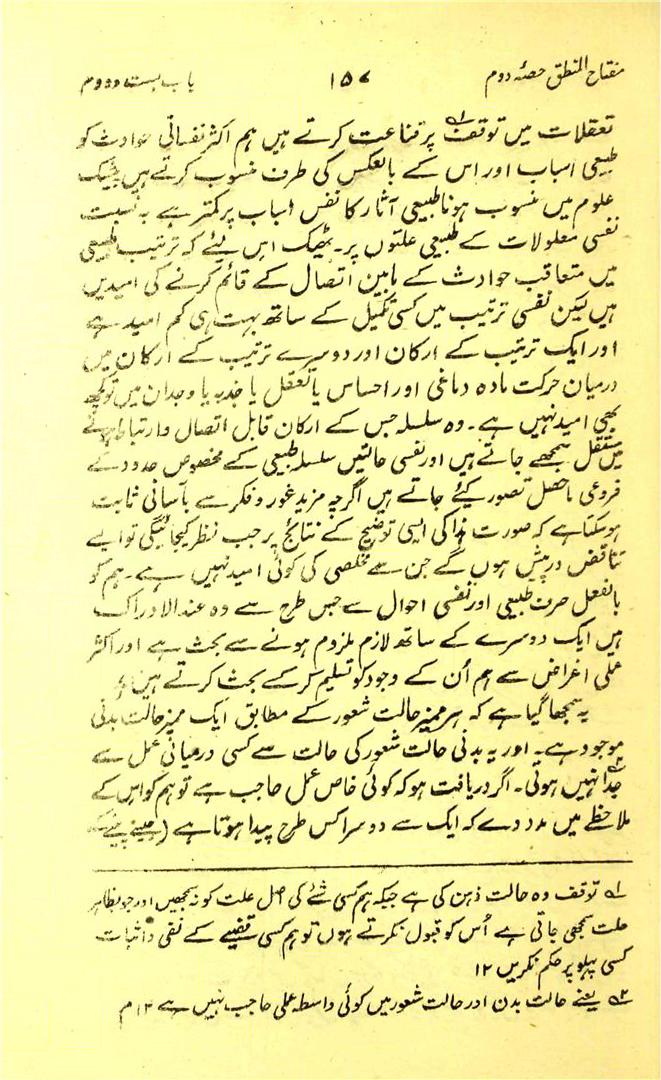 مفتاح المنطق حصۂ دوم ۱۵۷ باب بست و دوم
تعقلات میں توقف۱؎ پر قناعت کرتے ہیں ہم اکثر نفسانی حوادث کو
طبیعی اسباب اور اس کے بالعکس کی طرف منسوب کرتے ہیں ٹھیک
علوم میں منسوب ہونا طبیعی آثار کا نفس اسباب پر کمتر ہے بہ نسبت
نفسی معلولات کے طبیعی علتوں پر۔ ٹھیک اس لیئے کہ ترتیب طبیعی
میں متعاقب حوادث کے مابین اتصال کے قائم کرنے کی امیدیں
ہیں لیکن نفسی ترتیب میں کسی تکمیل کے ساتھ بہت ہی کم امید ہے
اور ایک ترتیب کے ارکان اور دوسرے ترتیب کے ارکان میں
درمیان حرکت مادہ دماغی اور احساس یا تعقل یا جذبہ یا وجدان میں تو کچھ
بھی امید نہیں ہے۔ وہ سلسلہ جس کے ارکان قابل اتصال وارتباط ہونے
میں مستقل سمجھے جاتے ہیں اور نفسی حالتیں سلسلہ طبیعی کے مخصوص حدود کے
فروعی ماحصل تصور کیئے جاتے ہیں اگرچہ مزید غور و فکر سے بآسانی ثابت
ہوسکتا ہے کہ صورت ہٰذا کی ایسی توضیح کے نتائج پر جب نظر کیجائیگی تو ایسے
تناقض درپیش ہوں گے جن سے مخلصی کی کوئی امید نہیں ہے۔ ہم کو
بالفعل صرف طبیعی اور نفسی احوال سے جس طرح سے وہ عند الادراک
ہیں ایک دوسرے کے ساتھ لازم ملزوم ہونے سے بحث ہے اور اکثر
عملی اغراض سے ہم اُن کے وجود کو تسلیم کرکے بحث کرتے ہیں؛
یہ سمجھا گیا ہے کہ ہر ممیز حالت شعور کے مطابق ایک ممیز حالت بدنی
موجود ہے۔ اور یہ بدنی حالت شعور کی حالت سے کسی درمیانی عمل سے
جدا۲؎ نہیں ہوتی۔ اگر دریافت ہو کہ کوئی خاص عمل حاجب ہے تو ہم کو اس کے
ملاحظے میں مدد دے کہ ایک سے دوسرا کس طرح پیدا ہوتا ہے (جیسے
۱؎ توقف وہ حالت ذہن کی ہے جبکہ ہم کسی شئے کی اصل علت کو نہ سمجھیں اور جو بظاہر
علت سمجھی جاتی ہے اُس کو قبول نکرتے ہوں تو ہم کسی قضیے کے نفی واثبات
کسی پہلو پر حکم نکریں ۱۲
۲؎ یعنے حالت بدن اور حالت شعور میں کوئی واسطہ عملی حاجب نہیں ہے ۱۲ م